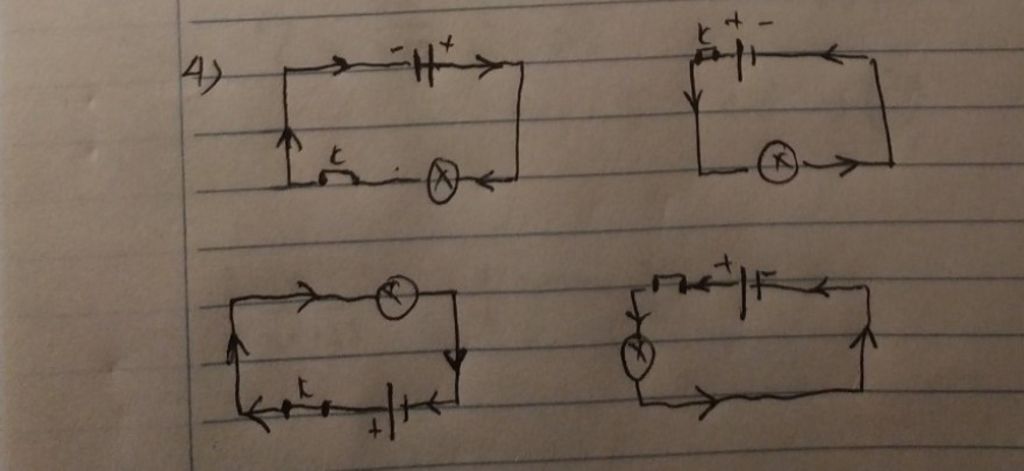 4)
- +
K + -
K
+ -
K
+